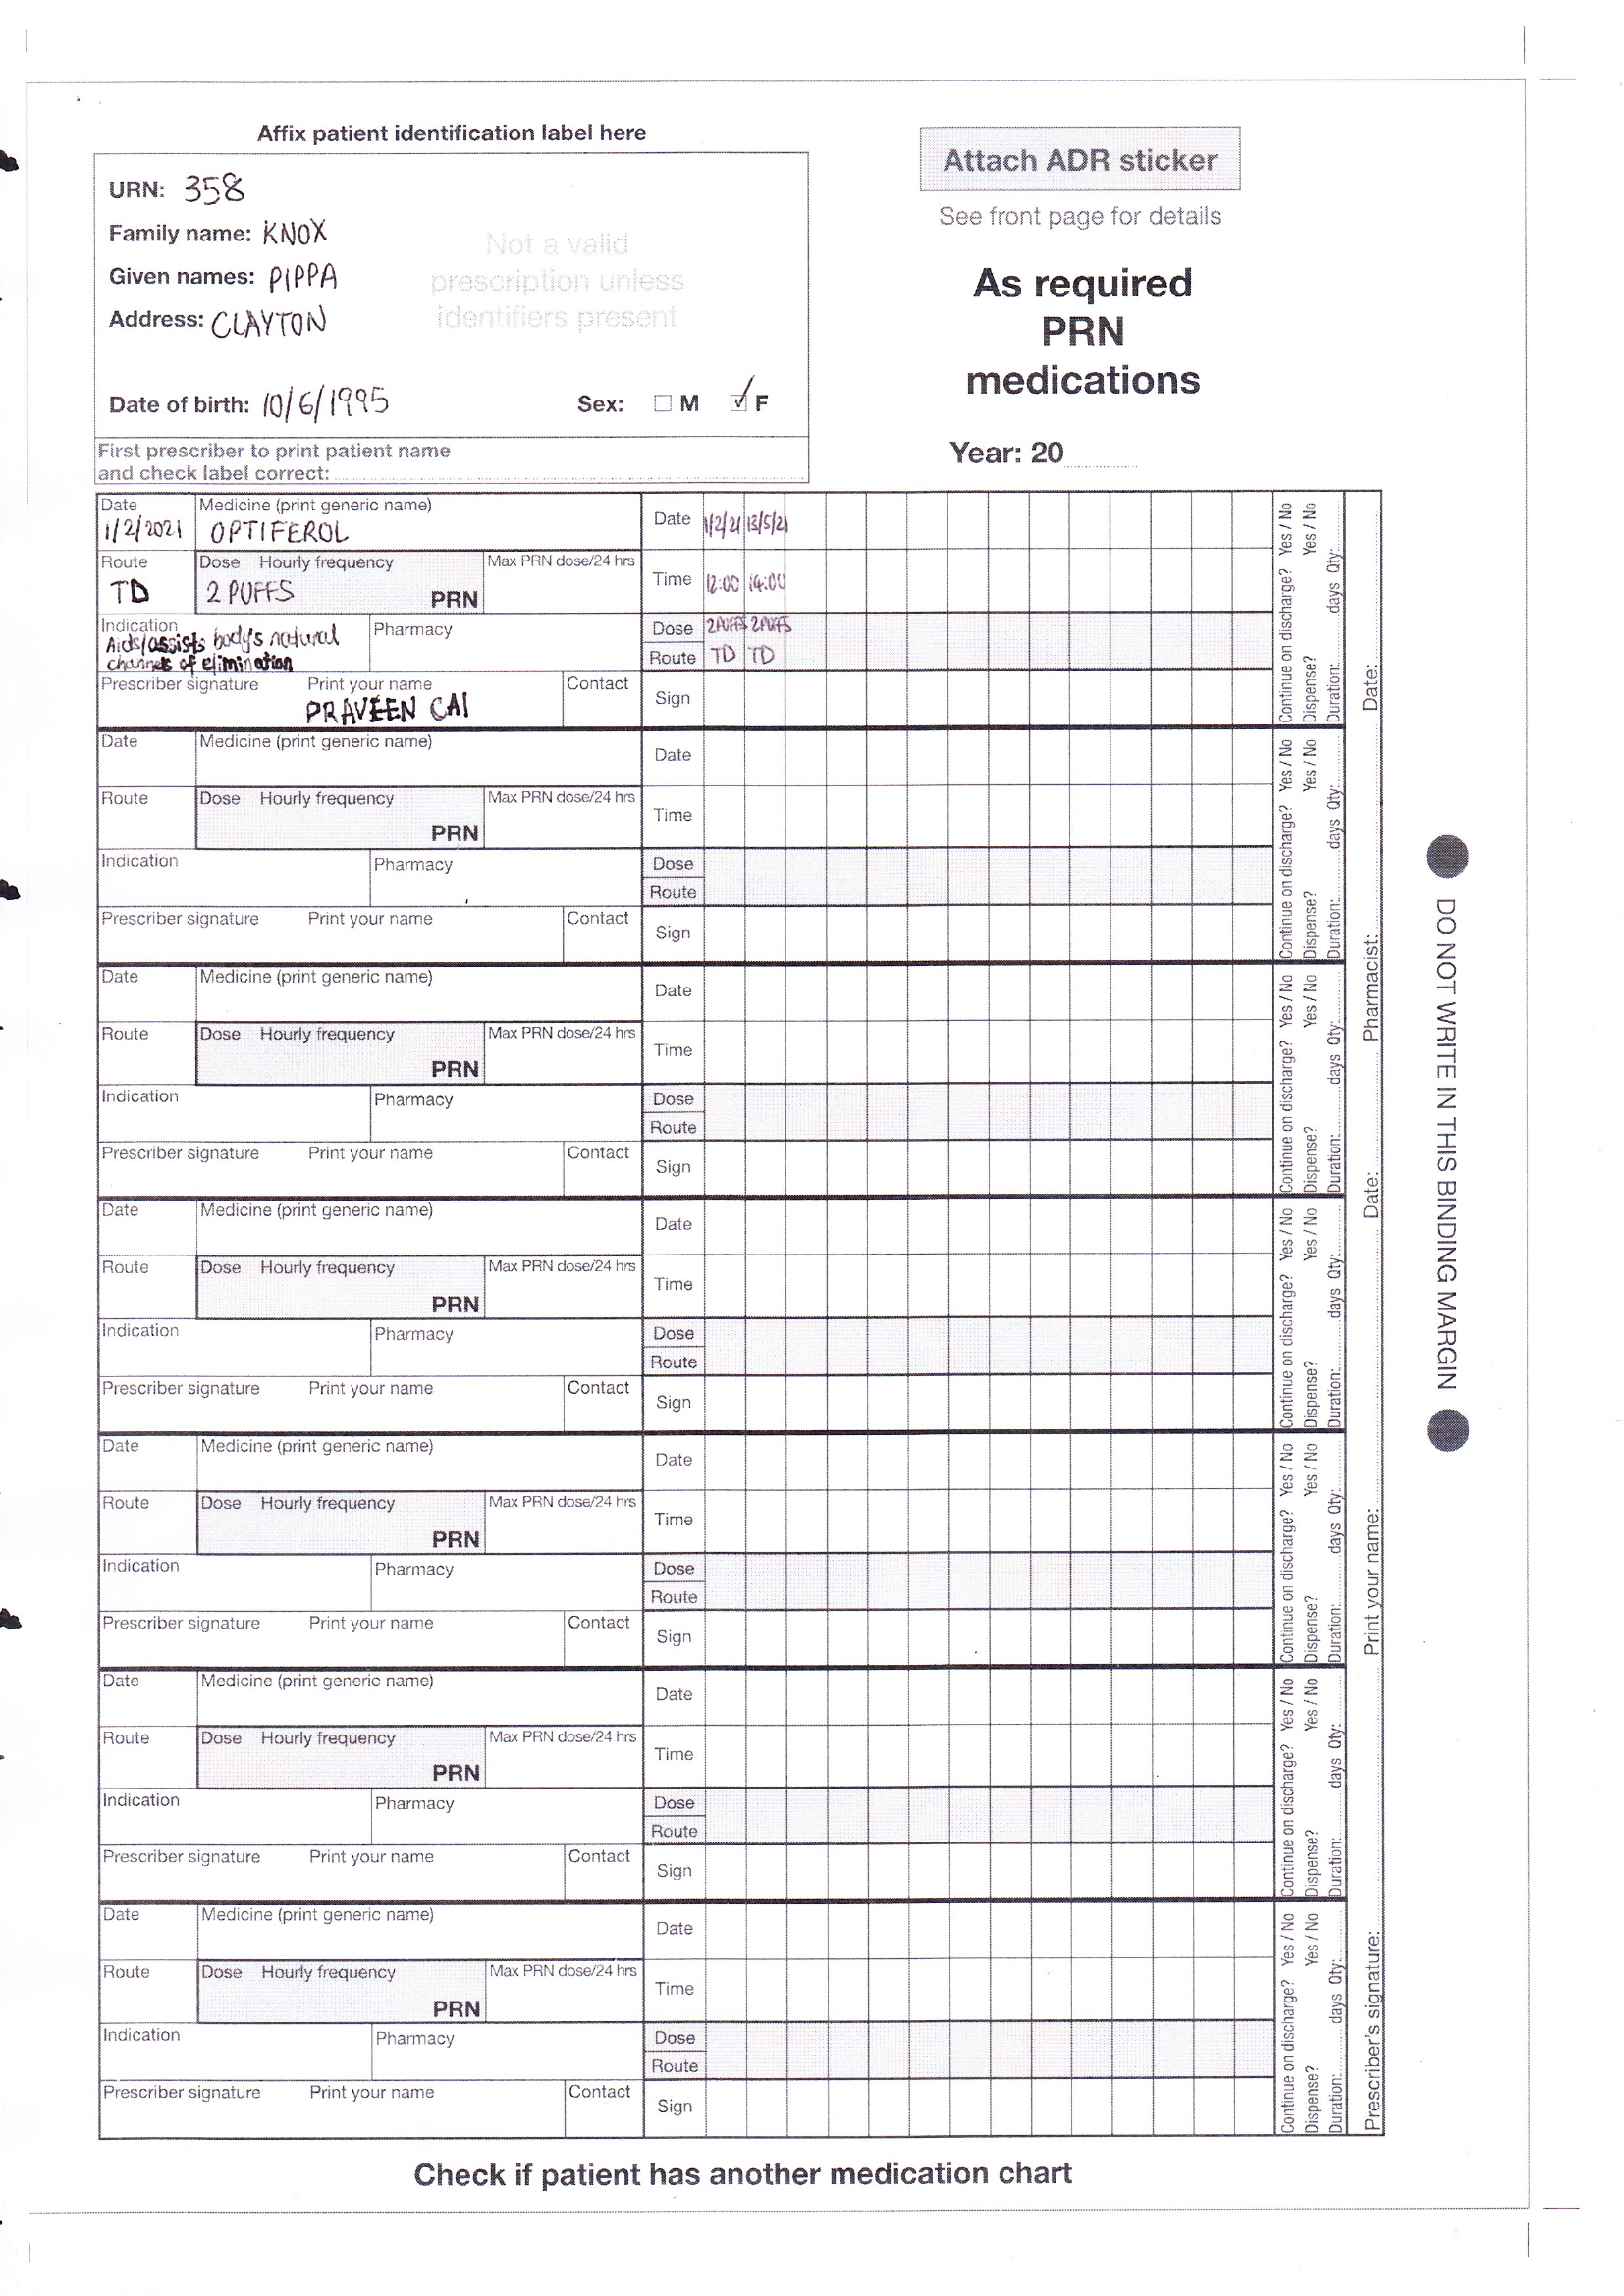 Affix patient identification label here
Attach ADR sticker
See front page for details
As required
PRN
medications
Year: 20
URN: 358
Family name: KNOX
Given names: PIPPA
Address: CLAYTON
Not a valid
prescription unless
identifiers present
Date of birth: 10/6/1995 Sex: M F
First prescriber to print patient name
and check label correct:
Date Medicine (print generic name) Date 1/2/21 13/5/21
1/2/2021 OPTIFEROL
Route Dose Hourly frequency Max PRN dose/24 hrs Time 12:00 14:00
TD 2 PUFFS PRN
Indication Pharmacy Dose 2PUFFS 2PUFFS
Aids/assists body's natural
channels of elimination Route TD TD
Prescriber signature Print your name Contact Sign
PRAVEEN CAI
Continue on discharge? Yes / No
Dispense? Yes / No
Duration: days Qty:
Date Medicine (print generic name) Date
Route Dose Hourly frequency Max PRN dose/24 hrs Time
PRN
Indication Pharmacy Dose
Route
Prescriber signature Print your name Contact Sign
Continue on discharge? Yes / No
Dispense? Yes / No
Duration: days Qty:
Date Medicine (print generic name) Date
Route Dose Hourly frequency Max PRN dose/24 hrs Time
PRN
Indication Pharmacy Dose
Route
Prescriber signature Print your name Contact Sign
Continue on discharge? Yes / No
Dispense? Yes / No
Duration: days Qty:
Date Medicine (print generic name) Date
Route Dose Hourly frequency Max PRN dose/24 hrs Time
PRN
Indication Pharmacy Dose
Route
Prescriber signature Print your name Contact Sign
Continue on discharge? Yes / No
Dispense? Yes / No
Duration: days Qty:
Date Medicine (print generic name) Date
Route Dose Hourly frequency Max PRN dose/24 hrs Time
PRN
Indication Pharmacy Dose
Route
Prescriber signature Print your name Contact Sign
Continue on discharge? Yes / No
Dispense? Yes / No
Duration: days Qty:
Date Medicine (print generic name) Date
Route Dose Hourly frequency Max PRN dose/24 hrs Time
PRN
Indication Pharmacy Dose
Route
Prescriber signature Print your name Contact Sign
Continue on discharge? Yes / No
Dispense? Yes / No
Duration: days Qty:
Date Medicine (print generic name) Date
Route Dose Hourly frequency Max PRN dose/24 hrs Time
PRN
Indication Pharmacy Dose
Route
Prescriber signature Print your name Contact Sign
Continue on discharge? Yes / No
Dispense? Yes / No
Duration: days Qty:
Prescriber's signature: Print your name: Date: Pharmacist: Date:
DO NOT WRITE IN THIS BINDING MARGIN
Check if patient has another medication chart